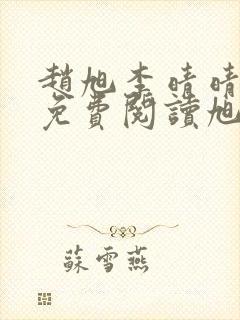 趙旭李晴晴
免費閱讀旭
蘇雪燕